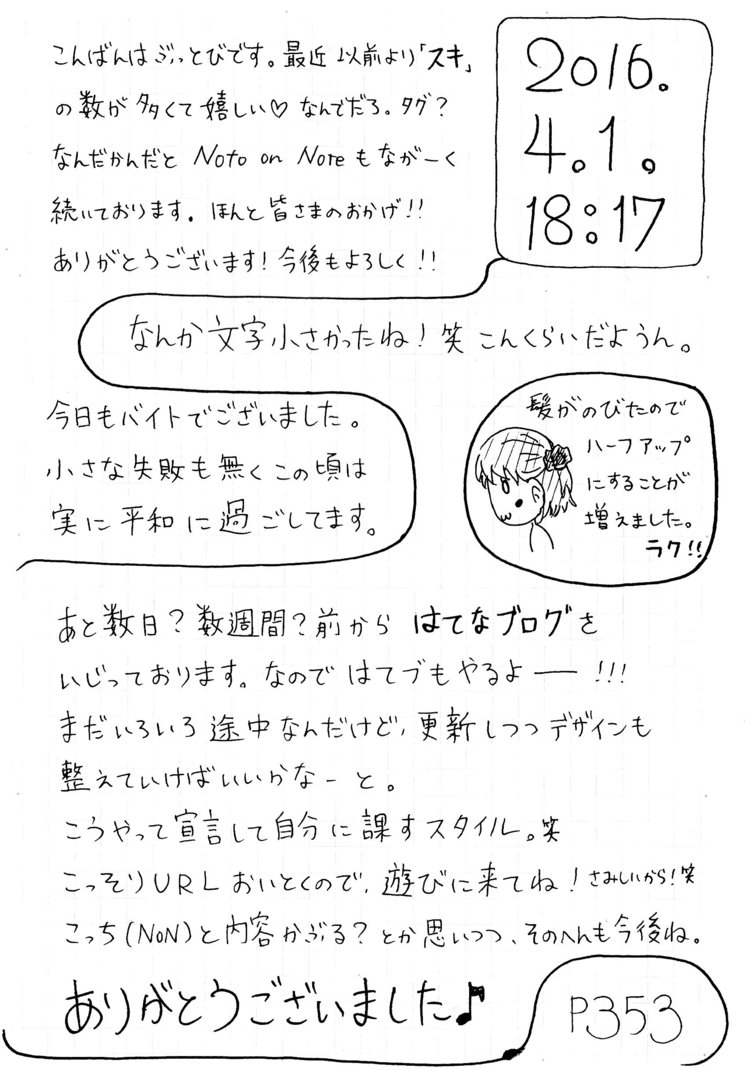 こんばんはぶっとびです。最近 以前より「スキ」
の数が 多くて嬉しい♡ なんでだろ。タグ?
なんだかんだと Noto on Noreもながーく
続いております。ほんと皆さまのおかげ!!
ありがとうございます! 今後もよろしく!!
2016.
4.1.
18:17
なんか文字小さかったね!笑 こんくらいだようん。
今日もバイトでございました。
小さな失敗も無くこの頃は
実に平和に過ごしてます。
髪がのびたので
ハーフアップ
にすることが
増えました。
ラク!!
あと数日?数週間?前から はてなブログを
いじっております。なので はてブもやるよー!!!
まだいろいろ途中なんだけど、更新しつつデザインも
整えていけばいいかなーと。
こうやって宣言して自分に課すスタイル。笑
こっそりURLおいとくので、遊びに来てね!さみしいから!笑
こっち(NoN)と内容かぶる?とか思いつつ、そのへんも今後ね。
ありがとうございました♪
P353